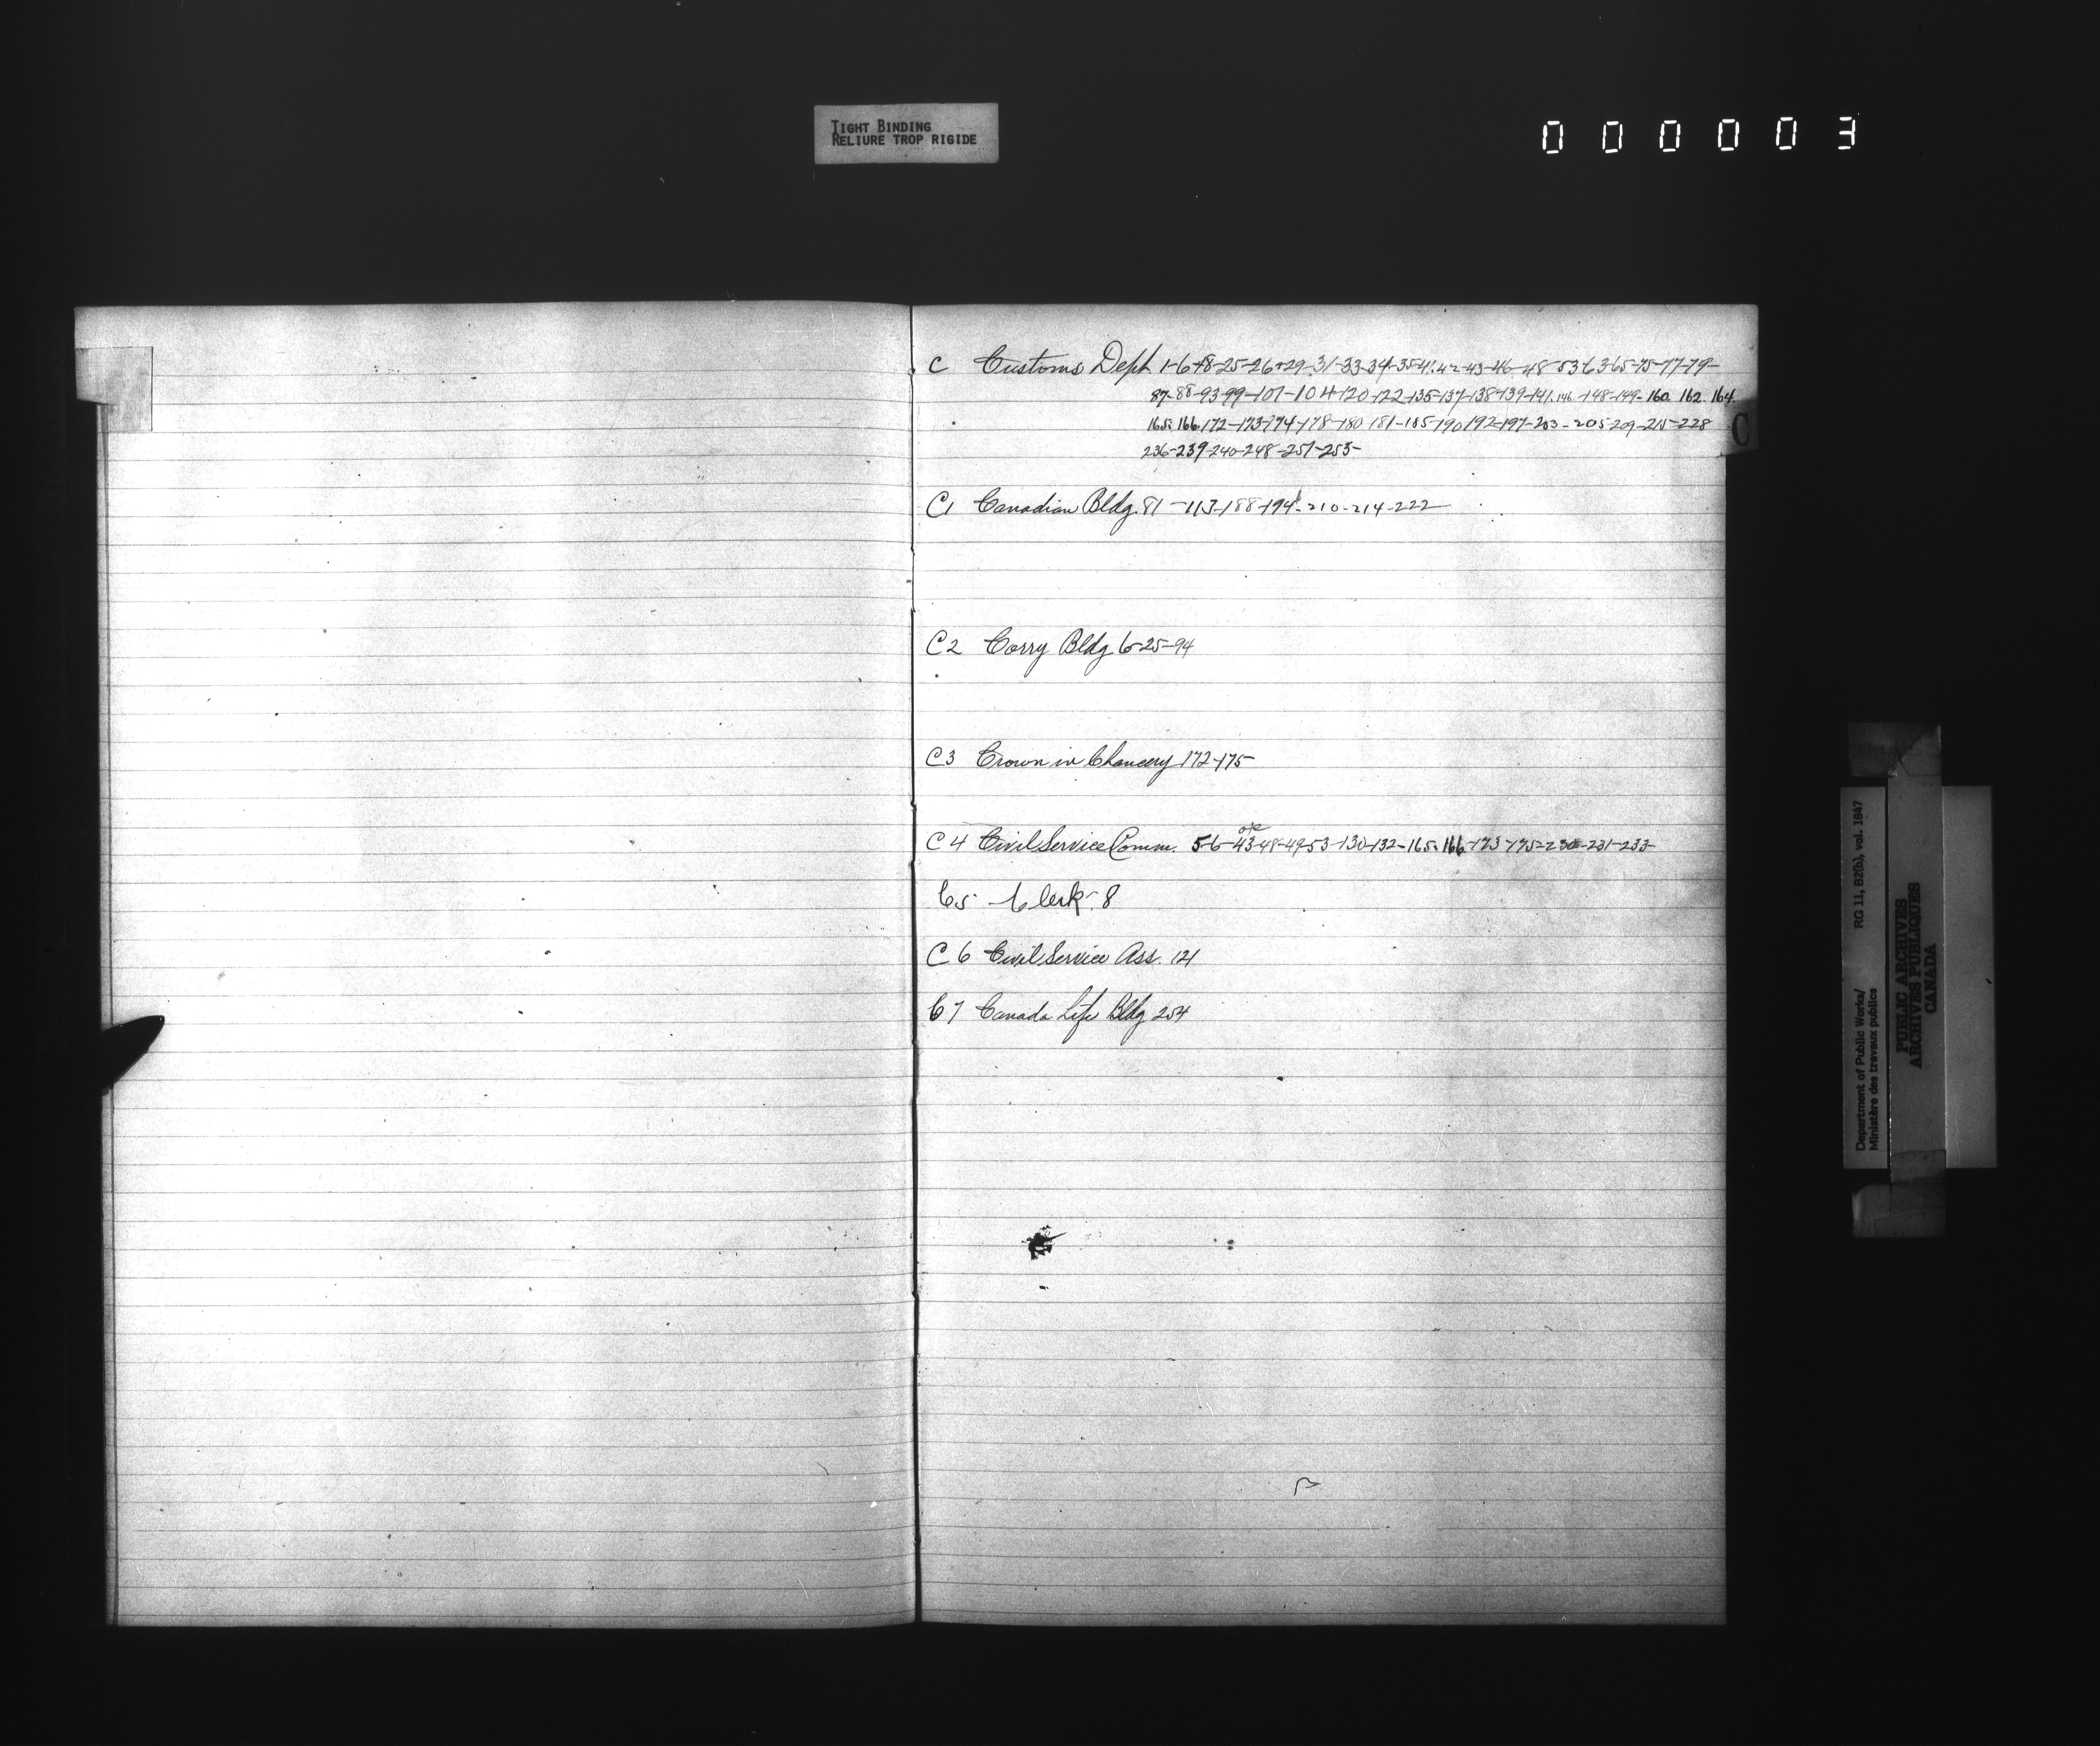 TIGHT BINDING
RELIURE TROP RIGIDE
000003
C Customs Dept. 1-6-18-25-26-29-31-33-34-35-41-42-43-46-48-53-63-65-75-77-79-
87-88-93-99-101-104-120-122-135-137-138-139-141-146-148-149-160. 162. 164.
165. 166. 172-173-174-178-180-181-185-190-192-197-203-205-209-215-228
236-239-240-248-251-253-
C
C1 Canadian Bldg. 81-113-188-194-210-214-222
C2 Corry Bldg 6-25-94
C3 Crown in Chancery 172-175
C4 Civil Service Comm. 5-6-43-48-49-53-130-132-165-166-173-175-230-231-233-
C5 Clerk. 8
C6 Civil Service Ass. 121
C7 Canada Life Bldg 254
Department of Public Works/ RG 11, B2(b), vol. 1847
Ministère des travaux publics
PUBLIC ARCHIVES
ARCHIVES PUBLIQUES
CANADA